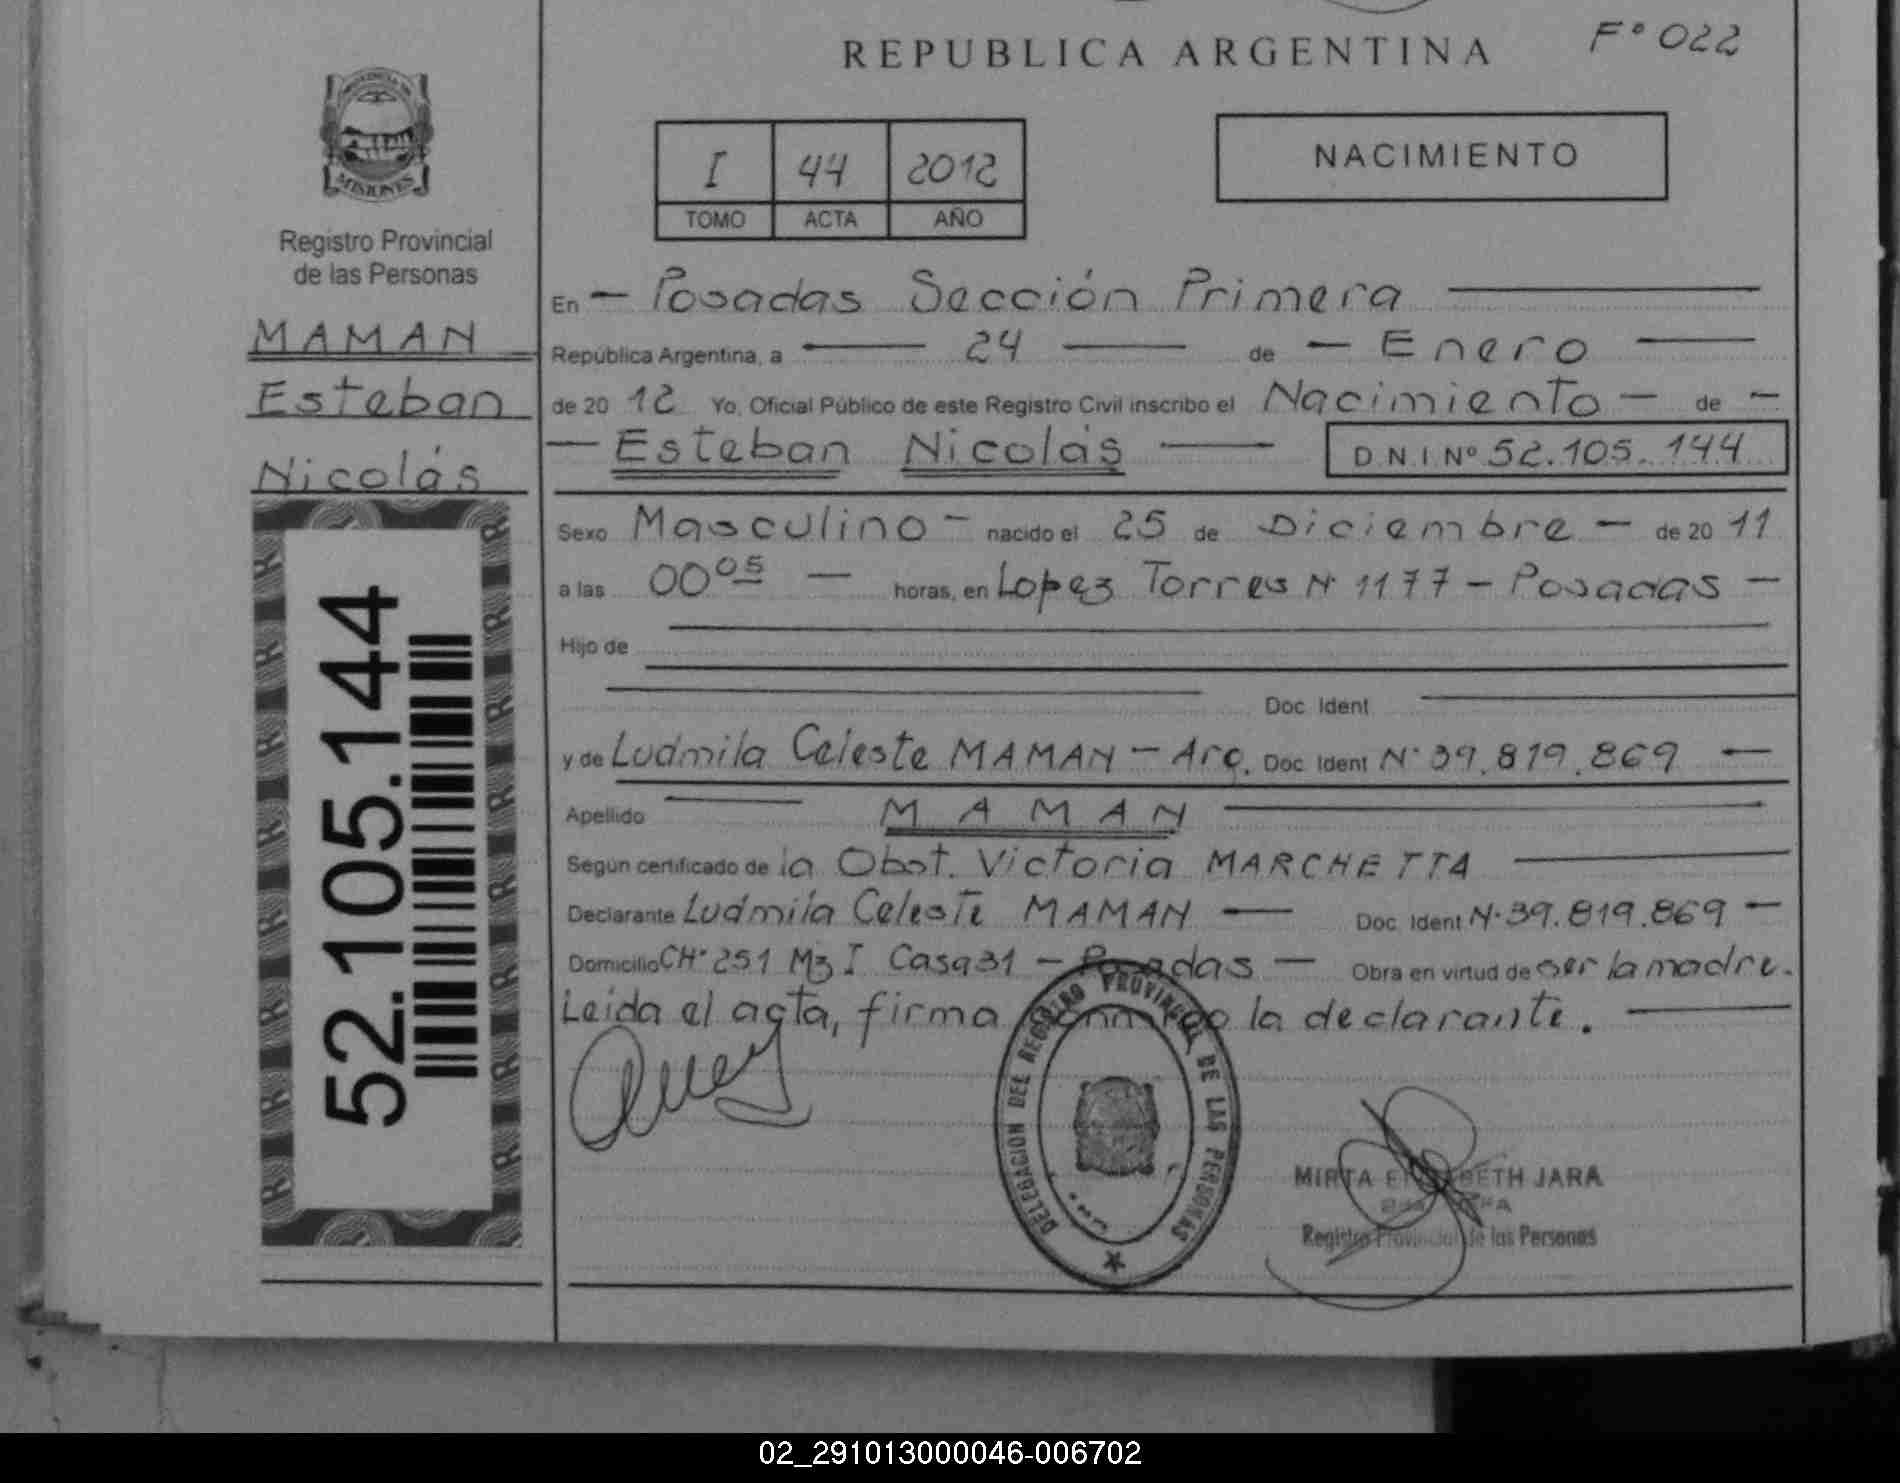 REPUBLICA ARGENTINA
Fº 022
PROVINCIA DE
MISIONES
Registro Provincial
de las Personas
MAMAN
Esteban
Nicolás
52.105.144
I 44 2012
TOMO ACTA AÑO
NACIMIENTO
En — Posadas Sección Primera —
República Argentina, a — 24 — de — Enero —
de 20 12 Yo, Oficial Público de este Registro Civil inscribo el Nacimiento — de —
— Esteban Nicolás — D.N.I. Nº 52.105.144
Sexo Masculino — nacido el 25 de Diciembre — de 20 11
a las 00 05 — horas, en Lopez Torres Nº 1177 — Posadas —
Hijo de
Doc. Ident.
y de Ludmila Celeste MAMAN — Arg. Doc. Ident. Nº 39.819.869 —
Apellido — MAMAN —
Según certificado de la Obst. Victoria MARCHETTA —
Declarante Ludmila Celeste MAMAN — Doc. Ident. Nº 39.819.869 —
Domicilio CHº 251 Mz I Casa 31 — Posadas — Obra en virtud de ser la madre.
Leida el acta, firma conmigo la declarante. —
DELEGACION DEL REGISTRO PROVINCIAL DE LAS PERSONAS
MIRTA ELIZABETH JARA
Registro Provincial de las Personas
02_291013000046-006702